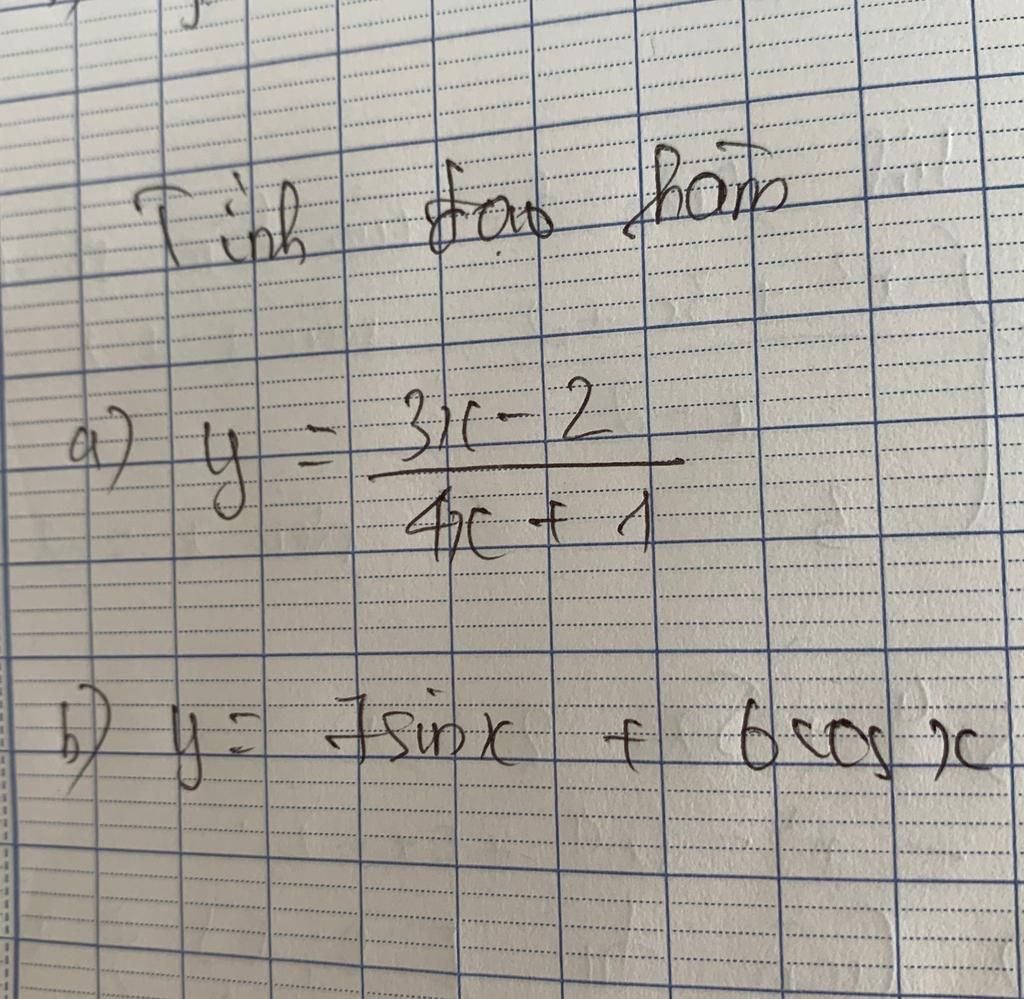 Tính đạo hàm
a) y = \frac{3x - 2}{4x + 1}
b) y = 7sinx + 6cos x